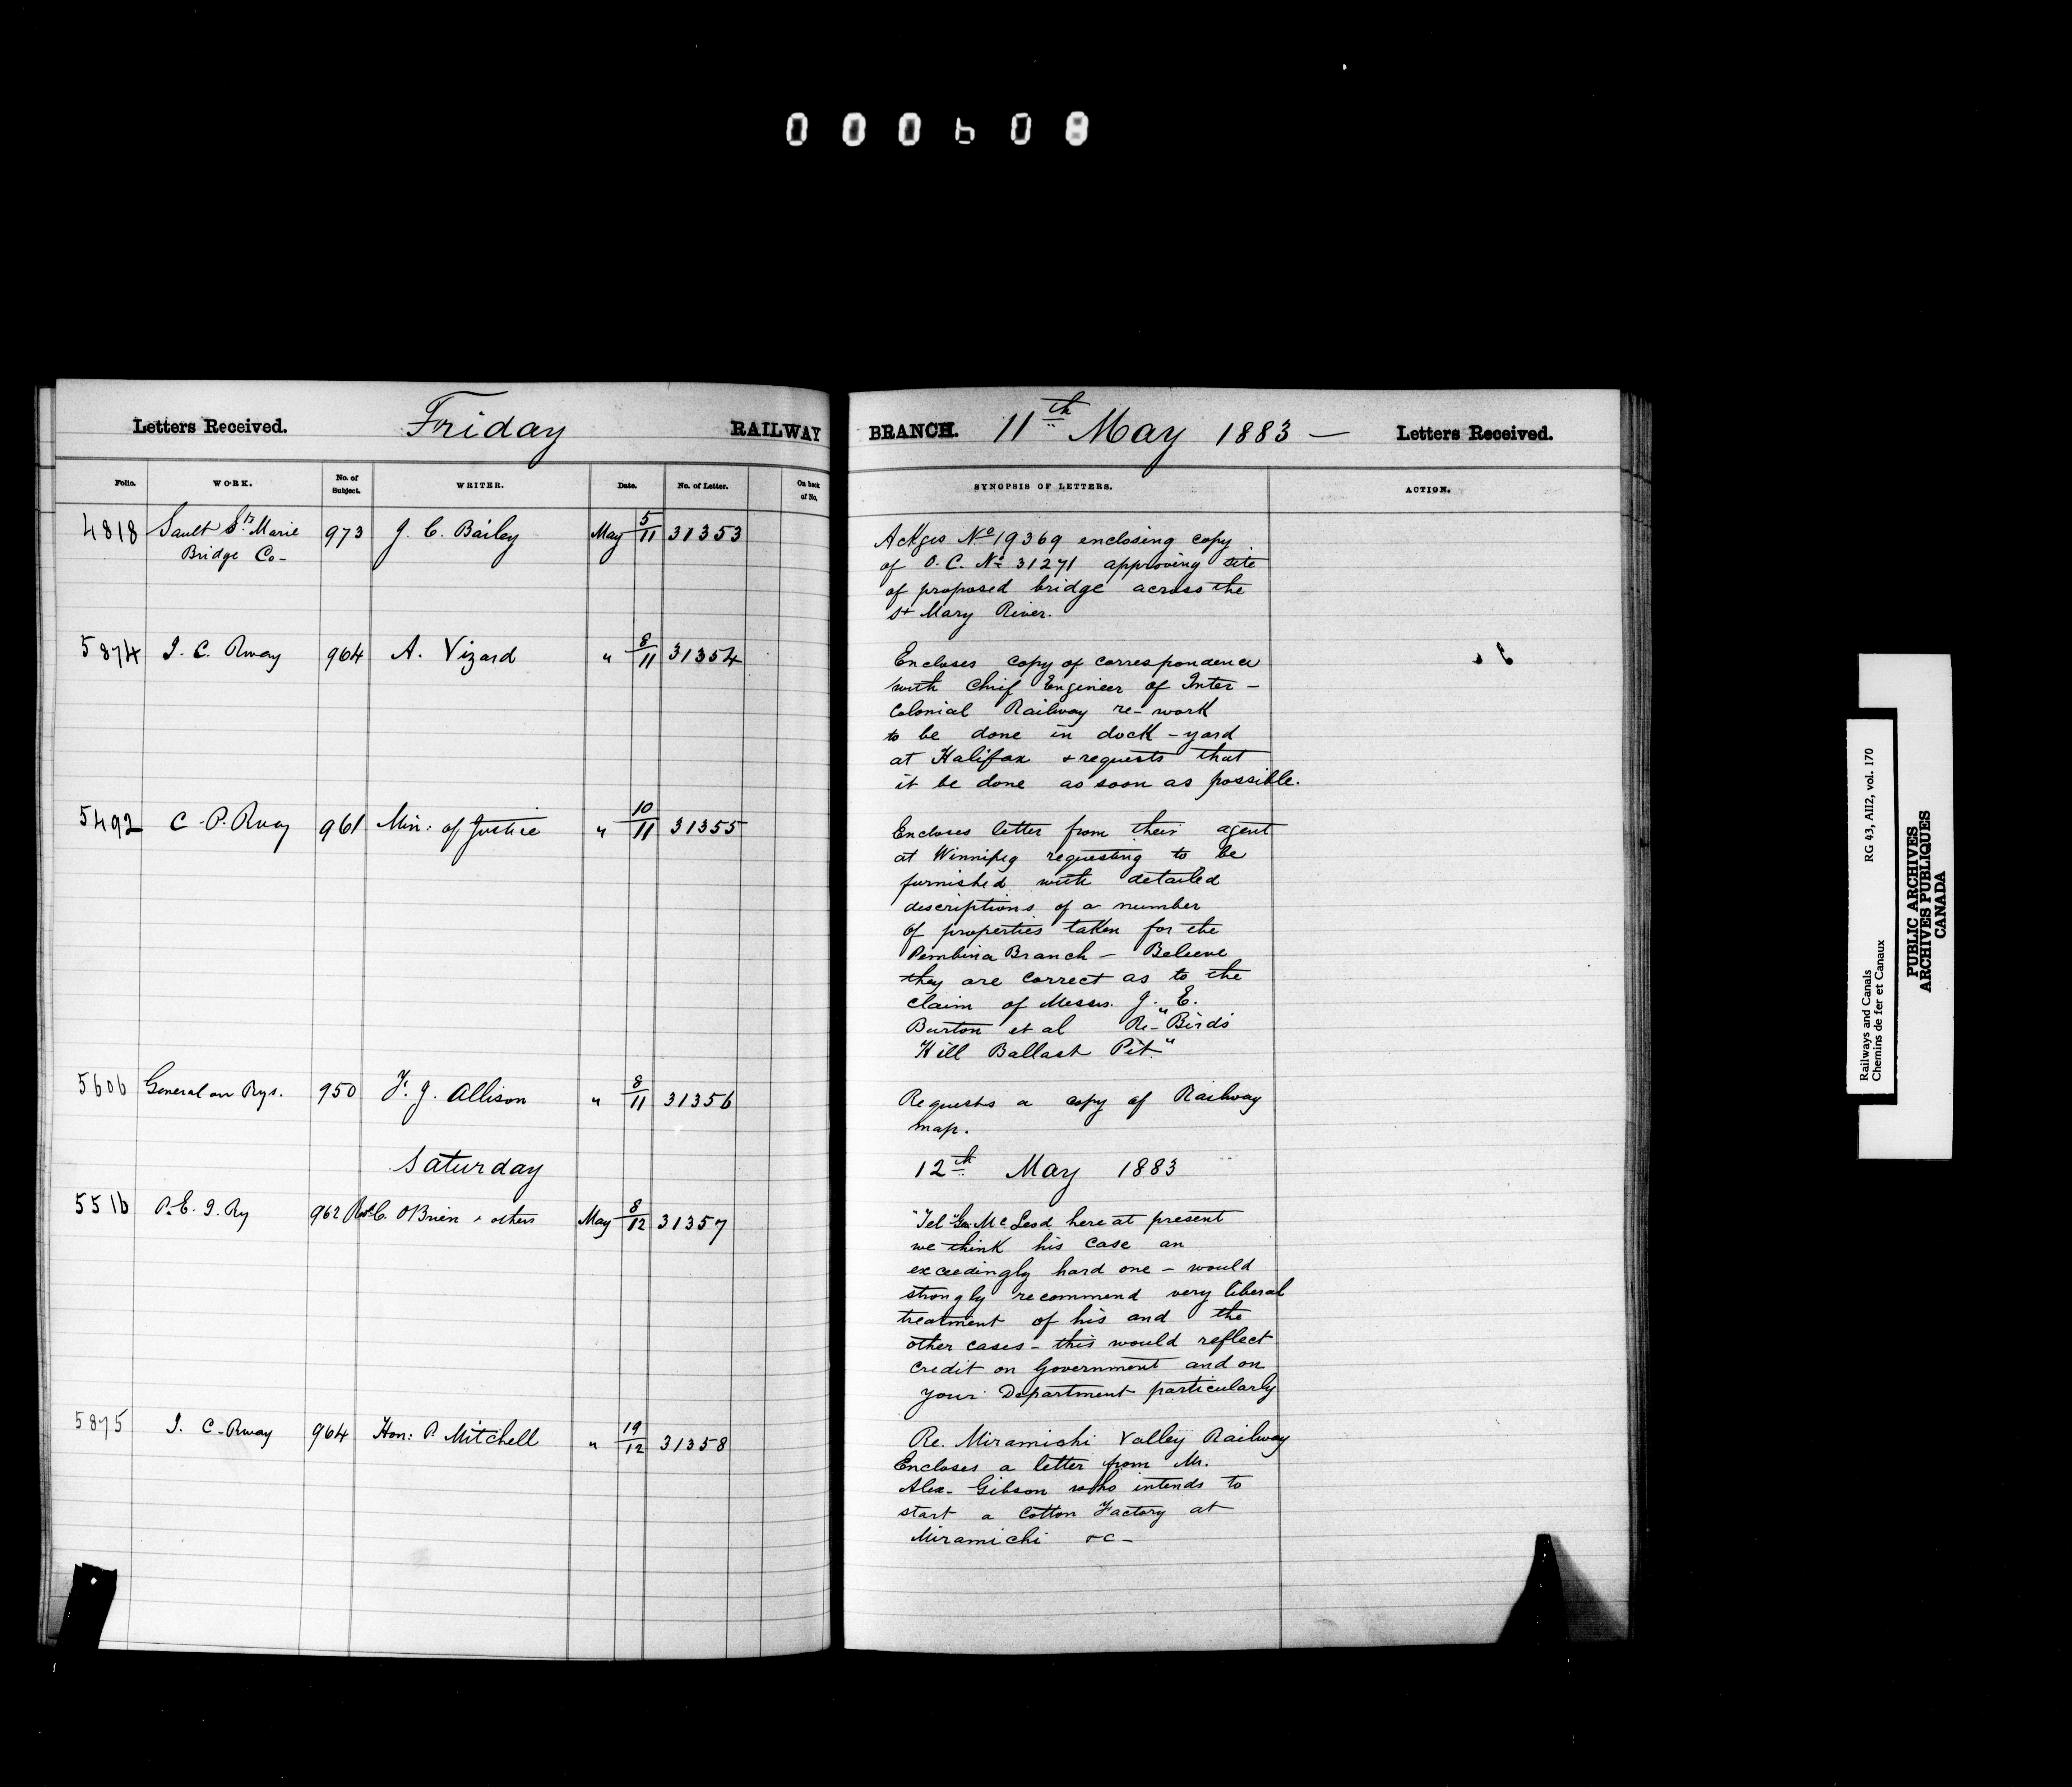 000608
Letters Received. Friday RAILWAY BRANCH. 11th May 1883 — Letters Received.
Folio. WORK. No. of Subject. WRITER. Date. No. of Letter. On back of No. SYNOPSIS OF LETTERS. ACTION.
4818 Sault Ste. Marie 973 J. C. Bailey May 5/11 31353
Bridge Co-
Ackges No 19369 enclosing copy
of O. C. No 31271 approving site
of proposed bridge across the
St Mary River.
5874 I. C. Rway 964 A. Vizard " 8/11 31354
Encloses copy of correspondence
with Chief Engineer of Inter-
Colonial Railway re- work
to be done in dock-yard
at Halifax & requests that
it be done as soon as possible.
5492 C. P. Rway 961 Min: of Justice " 10/11 31355
Encloses letter from their agent
at Winnipeg requesting to be
furnished with detailed
descriptions of a number
of properties taken for the
Pembina Branch – Believe
they are correct as to the
claim of Messrs. J. E.
Burton et al Re- "Birds
Hill Ballast Pit."
5606 General on Rys. 950 F. J. Allison " 8/11 31356
Requests a copy of Railway
map.
Saturday 12th May 1883
5516 P. E. I. Ry 962 O'Brien & others May 8/12 31357
"Tel" Geo. McLeod here at present
we think his case an
exceedingly hard one – would
strongly recommend very liberal
treatment of his and the
other cases – this would reflect
credit on Government and on
your Department particularly
5875 I. C. Rway 964 Hon: P. Mitchell " 19/12 31358
Re. Miramichi Valley Railway
Encloses a letter from Mr.
Alex. Gibson who intends to
start a Cotton Factory at
Miramichi &c-
Railways and Canals RG 43, AII2, vol. 170
Chemins de fer et Canaux
PUBLIC ARCHIVES
ARCHIVES PUBLIQUES
CANADA